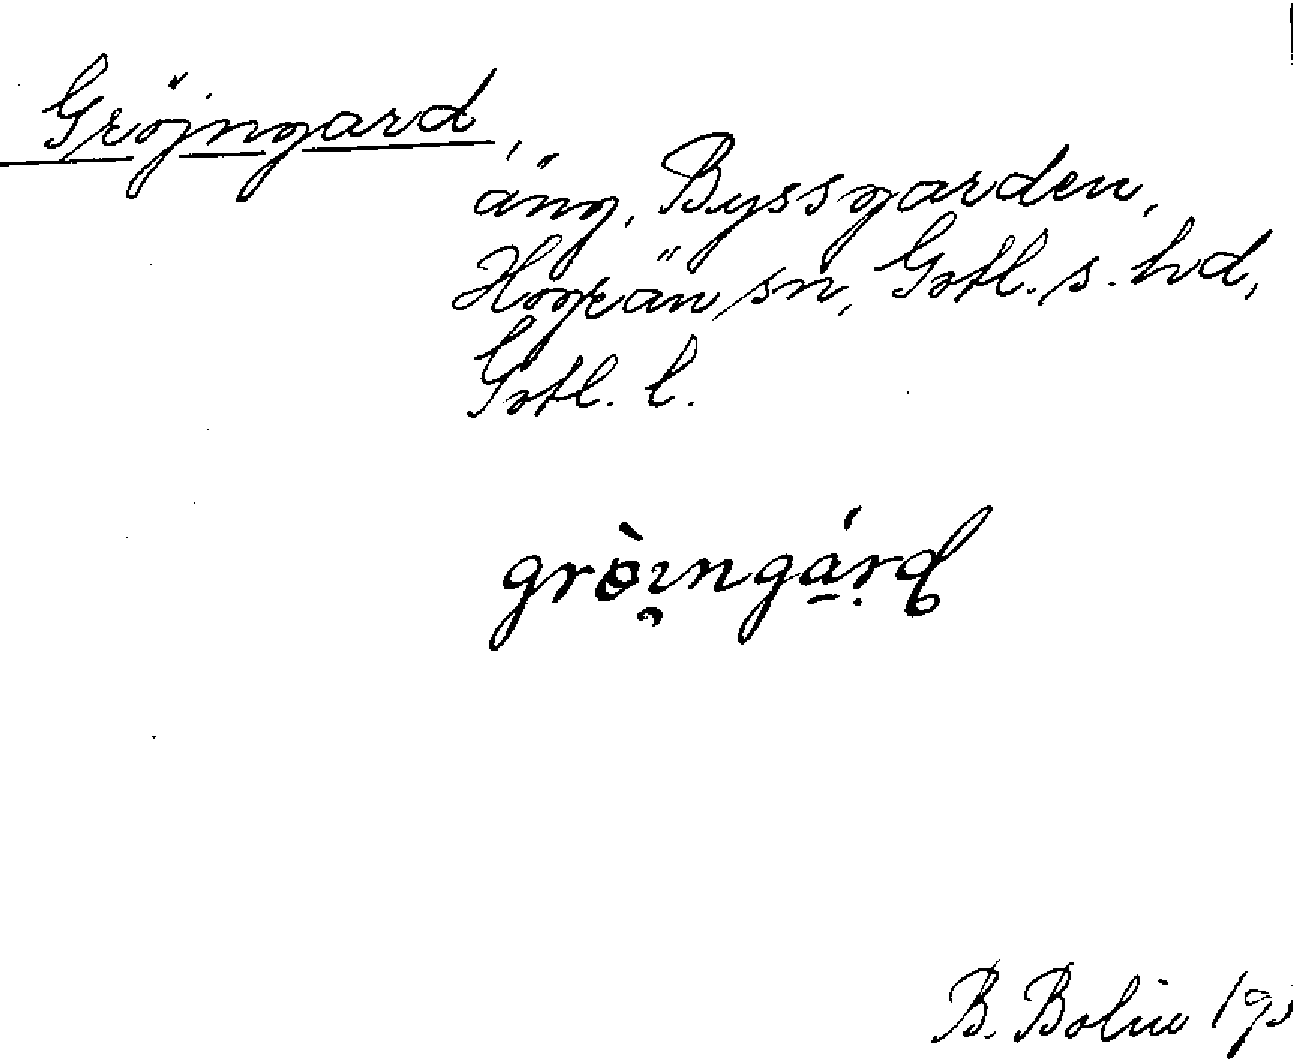 Gröjngard,
äng, Byssgarden,
Hogrän sn, Gotl. s. hd,
Gotl. l.
gròi̯ngá̱rḍ
B. Bolin 193